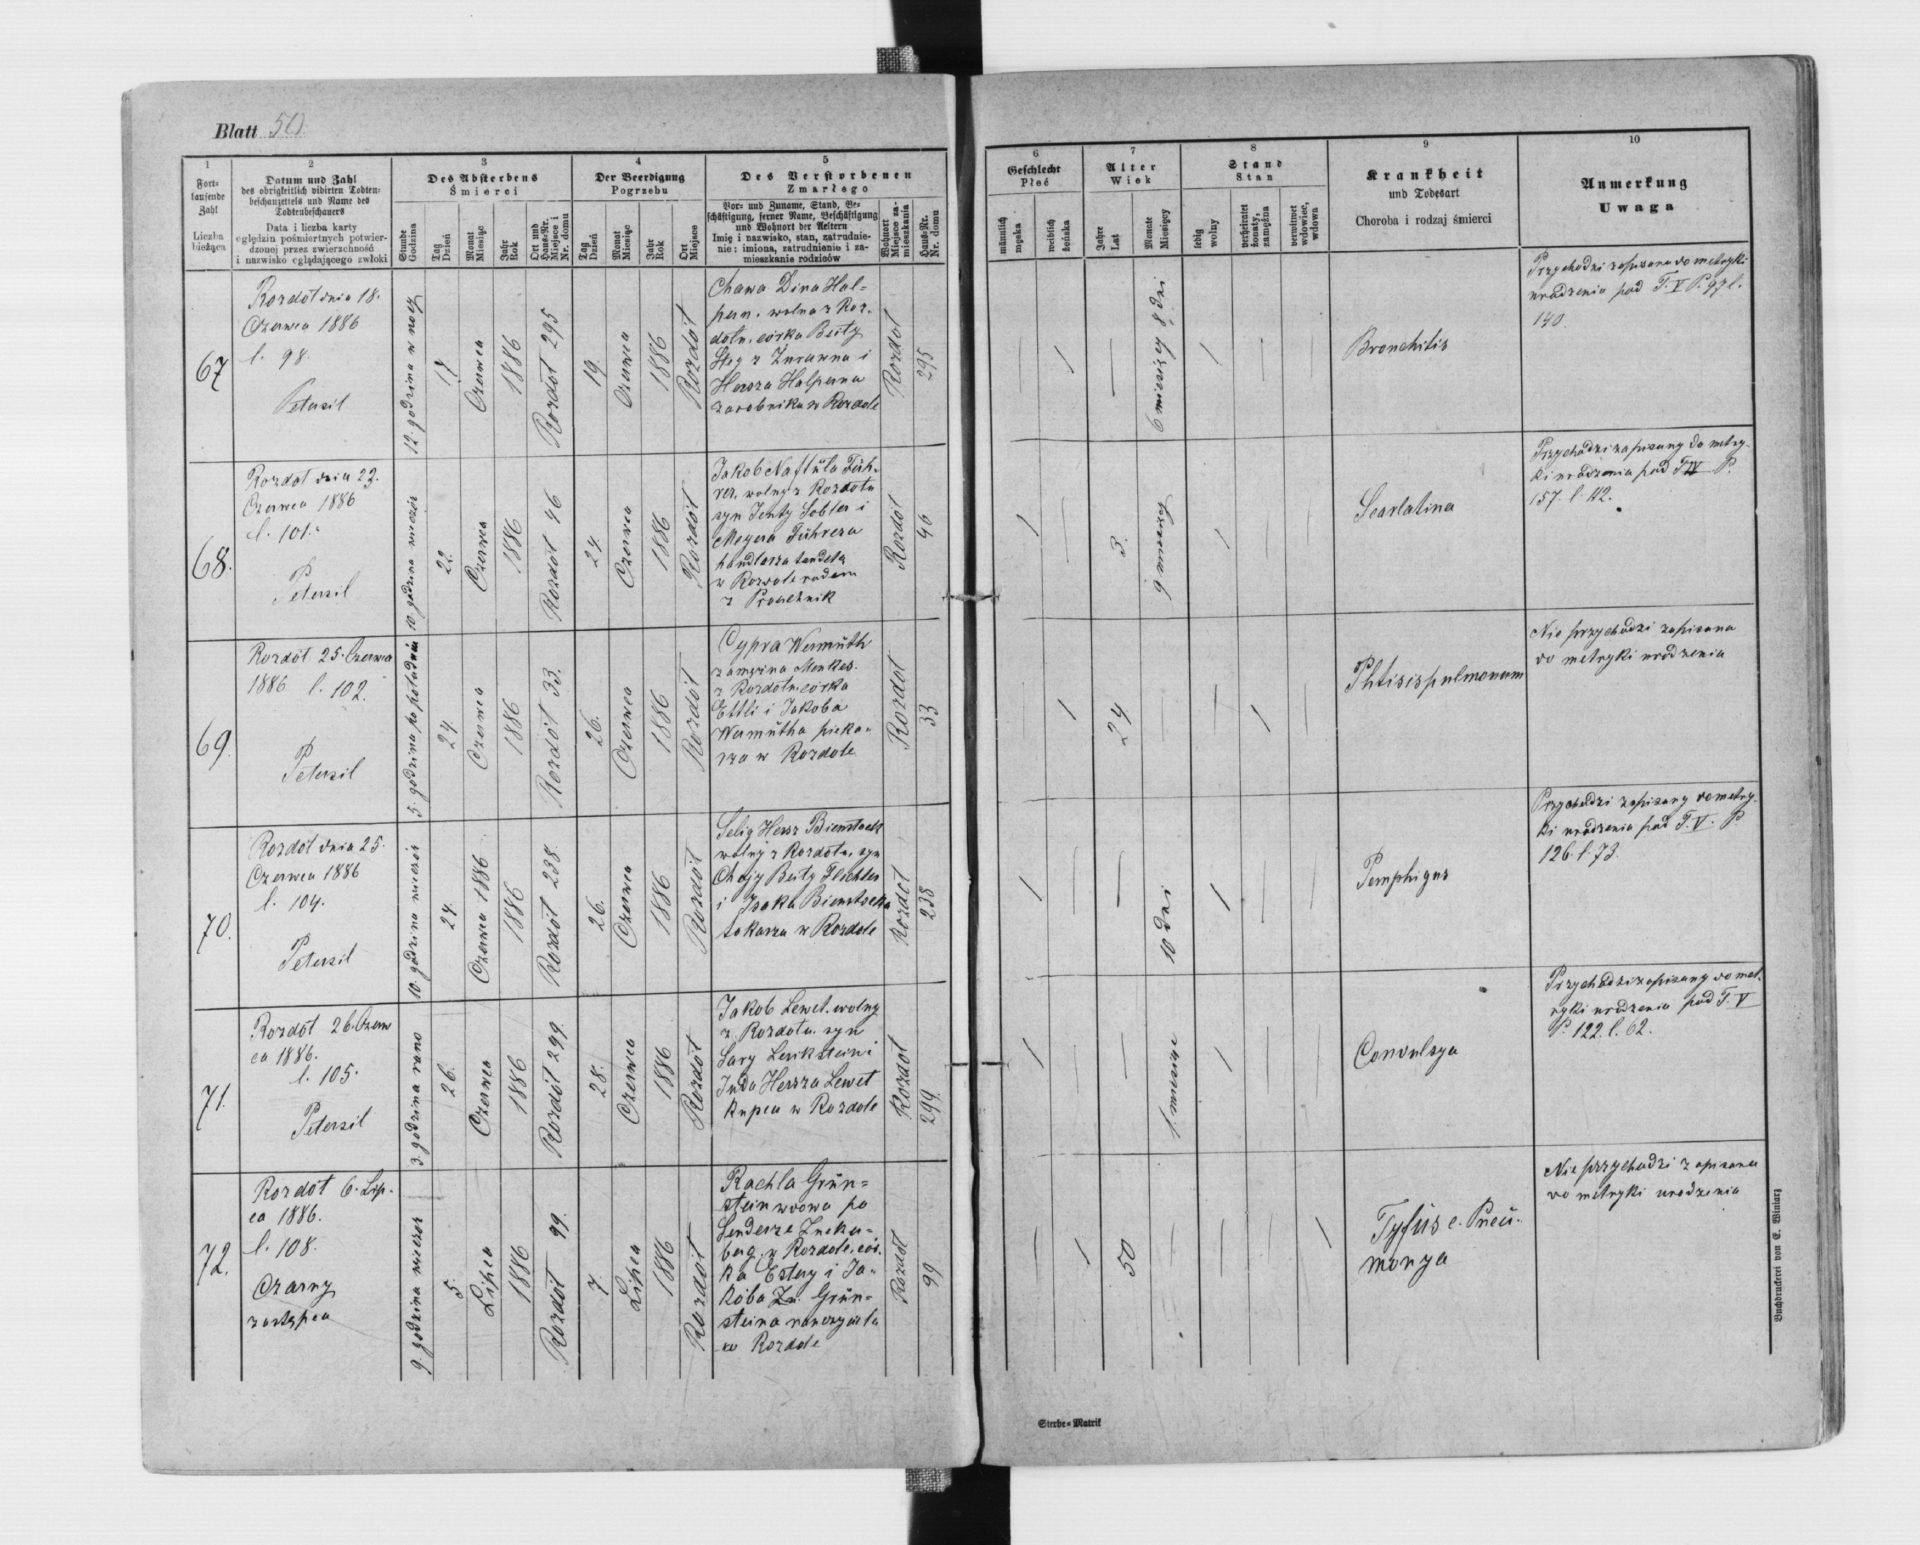 Blatt 50.
1
Fort-
laufende
Zahl
Liczba
bieżąca
2
Datum und Zahl
des obrigkeitlich vidirten Todten-
beschauzettels und Name des
Todtenbeschauers
Data i liczba karty
oględzin pośmiertnych potwier-
dzonej przez zwierzchność
i nazwisko oglądającego zwłoki
3
Des Absterbens
Śmierci
Stunde
Godzina
Tag
Dzień
Monat
Miesiąc
Jahr
Rok
Ort und
Haus-Nr.
Miejsce i
Nr. domu
4
Der Beerdigung
Pogrzebu
Tag
Dzień
Monat
Miesiąc
Jahr
Rok
Ort
Miejsce
5
Des Verstorbenen
Zmarłego
Vor- und Zuname, Stand, Be-
schäftigung, ferner Name, Beschäftigung
und Wohnort der Aeltern
Imię i nazwisko, stan, zatrudnie-
nie; imiona, zatrudnienie i za-
mieszkanie rodziców
Wohnort
Miejsce za-
mieszkania
Haus-Nr.
Nr. domu
6
Geschlecht
Płeć
männlich
męska
weiblich
żeńska
7
Alter
Wiek
Jahre
Lat
Monate
Miesięcy
8
Stand
Stan
ledig
wolny
verheiratet
żonaty,
zamężna
verwitwet
wdowiec,
wdowa
9
Krankheit
und Todesart
Choroba i rodzaj śmierci
10
Anmerkung
Uwaga
67
Rozdół dnia 18.
Czerwca 1886
l. 98.
Petersil
12. godzina w nocy
17
Czerwca
1886
Rozdół 295
19.
Czerwca
1886
Rozdół
Chawa Dina Hal-
pern. wolna z Roz-
dołu. córka Beity
Stog z Żurawna i
Hersza Halperna
zarobnika w Rozdole
Rozdół
295
6 miesięcy 8 dni
Bronchitis
Przychodzi zapisana do metryki
urodzenia pod T. V P. 97 l.
140.
68.
Rozdół dnia 23.
Czerwca 1886
l. 101.
Petersil
10. godzina wieczór
22.
Czerwca
1886
Rozdół 46
24.
Czerwca
1886
Rozdół
Jakob Naftüla Füh-
rer. wolny z Rozdołu
syn Jenty Sobler i
Meyera Führera
handlarza tandetą
w Rozdole rodem
z
Rozdół
46
3.
9 miesięcy
Scarlatina
Przychodzi zapisany do metry-
ki urodzenia pod T IV P.
157. l. 112.
69.
Rozdół 25. Czerwca
1886 l. 102.
Petersil
5. godzina po południu
24.
Czerwca
1886
Rozdół 33.
26.
Czerwca
1886
Rozdół
Cypra Wermüth
zamężna Menkes.
z Rozdołu. córka
Ettli i Jakoba
Wermütha pieka-
rza w Rozdole
Rozdół
33
24
Phtisis pulmonum
Nie przychodzi zapisana
do metryki urodzenia
70.
Rozdół dnia 25.
Czerwca 1886
l. 104.
Petersil
10. godzina wieczór
24.
Czerwca 1886
1886
Rozdół 238.
26.
Czerwca
1886
Rozdół
Selig Hersz Bienstock
wolny z Rozdołu. syn
Chajy Beity Flechter
i Izaka Bienstocka
tokarza w Rozdole
Rozdół
238
10 dni
Pemphigus
Przychodzi zapisany do metry-
ki urodzenia pod T. V. P
126. l. 73.
71.
Rozdół 26. Czerw
ca 1886.
l. 105.
Petersil
3. godzina rano
26.
Czerwca
1886
Rozdół 299.
28.
Czerwca
1886
Rozdół
Jakob Lewet. wolny
z Rozdołu. syn
Sary
Juda Hersza Lewet
kupca w Rozdole
Rozdół
299.
1. miesiąc
Convulsya
Przychodzi zapisany do met-
ryki urodzenia pod T. V
P. 122. l. 62.
72.
Rozdół 6. Lip-
ca 1886.
l. 108.
Czarny
zastępca
9. godzina wieczór
5.
Lipca
1886
Rozdół 99.
7
Lipca
1886
Rozdół
Rachla Grün-
stein wdowa po
Senderze Zucker-
berg. z Rozdole. cór-
ka Estery i Ja-
koba Zu Grün-
steina
w Rozdole
Rozdół
99
50
Tyfus c. Pneü-
monya
Nie przychodzi zapisana
do metryki urodzenia
Sterbe-Matrik
Buchdruckerei von E. Winiarz